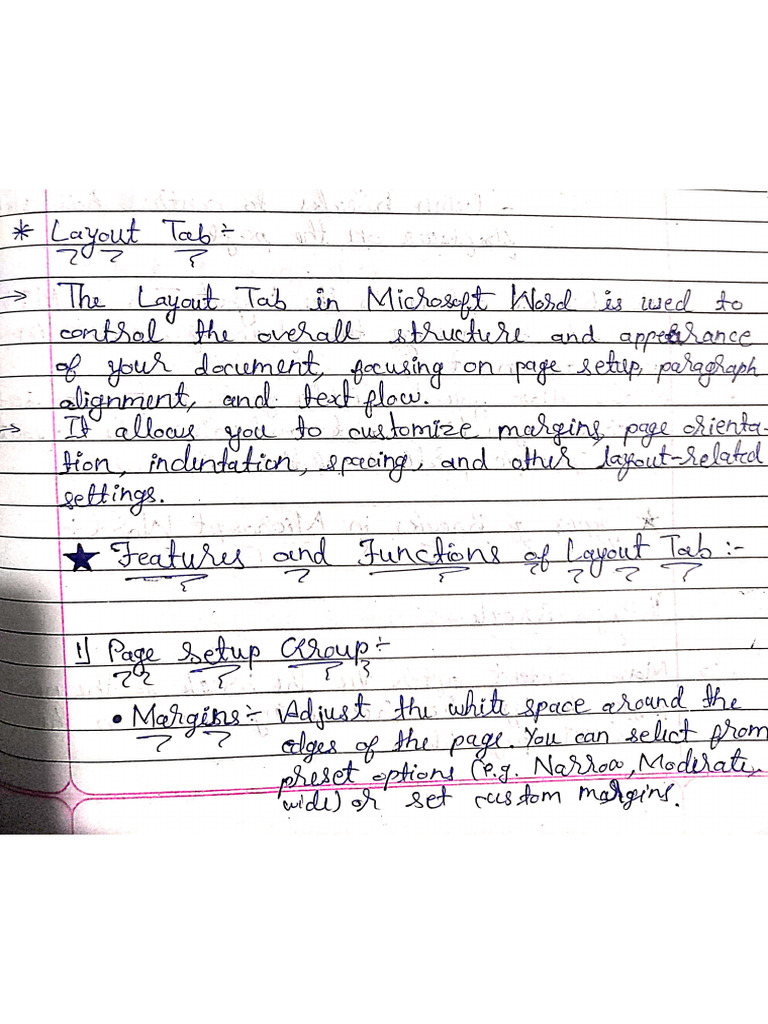 * Layout Tab :-
→ The Layout Tab in Microsoft Word is used to
control the overall structure and appearance
of your document, focusing on page setup, paragraph
alignment, and text flow.
→ It allows you to customize margins, page orienta-
tion, indentation, spacing, and other layout-related
settings.
★ Features and Functions of Layout Tab :-
1) Page Setup Group :-
• Margins :- Adjust the white space around the
edges of the page. You can select from
preset options (e.g. Narrow, Moderate,
wide) or set custom margins.